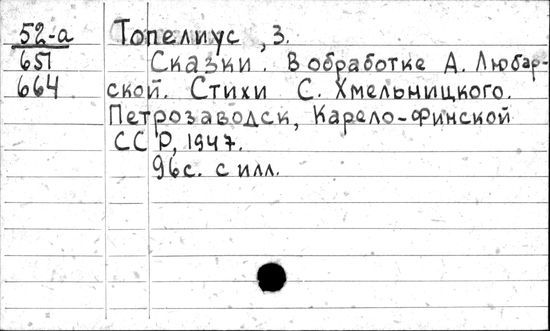 52-а Топелиус, З.
651 Сказки. В обработке А. Любар-
664 ской. Стихи С. Хмельницкого.
Петрозаводск, Карело-Финской
ССР, 1947.
96с. с илл.